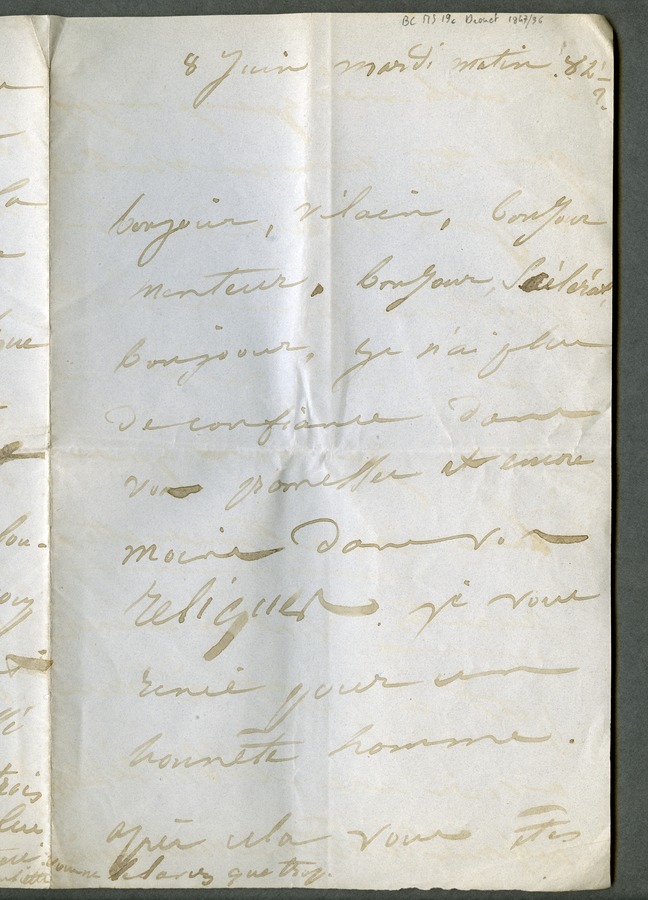 BC MS 19c Drouet 1847/36
8 Juin mardi matin 8 h ½
bonjour, vilain, bonjour
menteur, bonjour, scélérat
bonjour, je n'ai plus
de confiance dans
vos promesses et encore
moins dans vos
reliques. je vous
renie pour un
honnête homme.
après cela vous êtes
que trop.